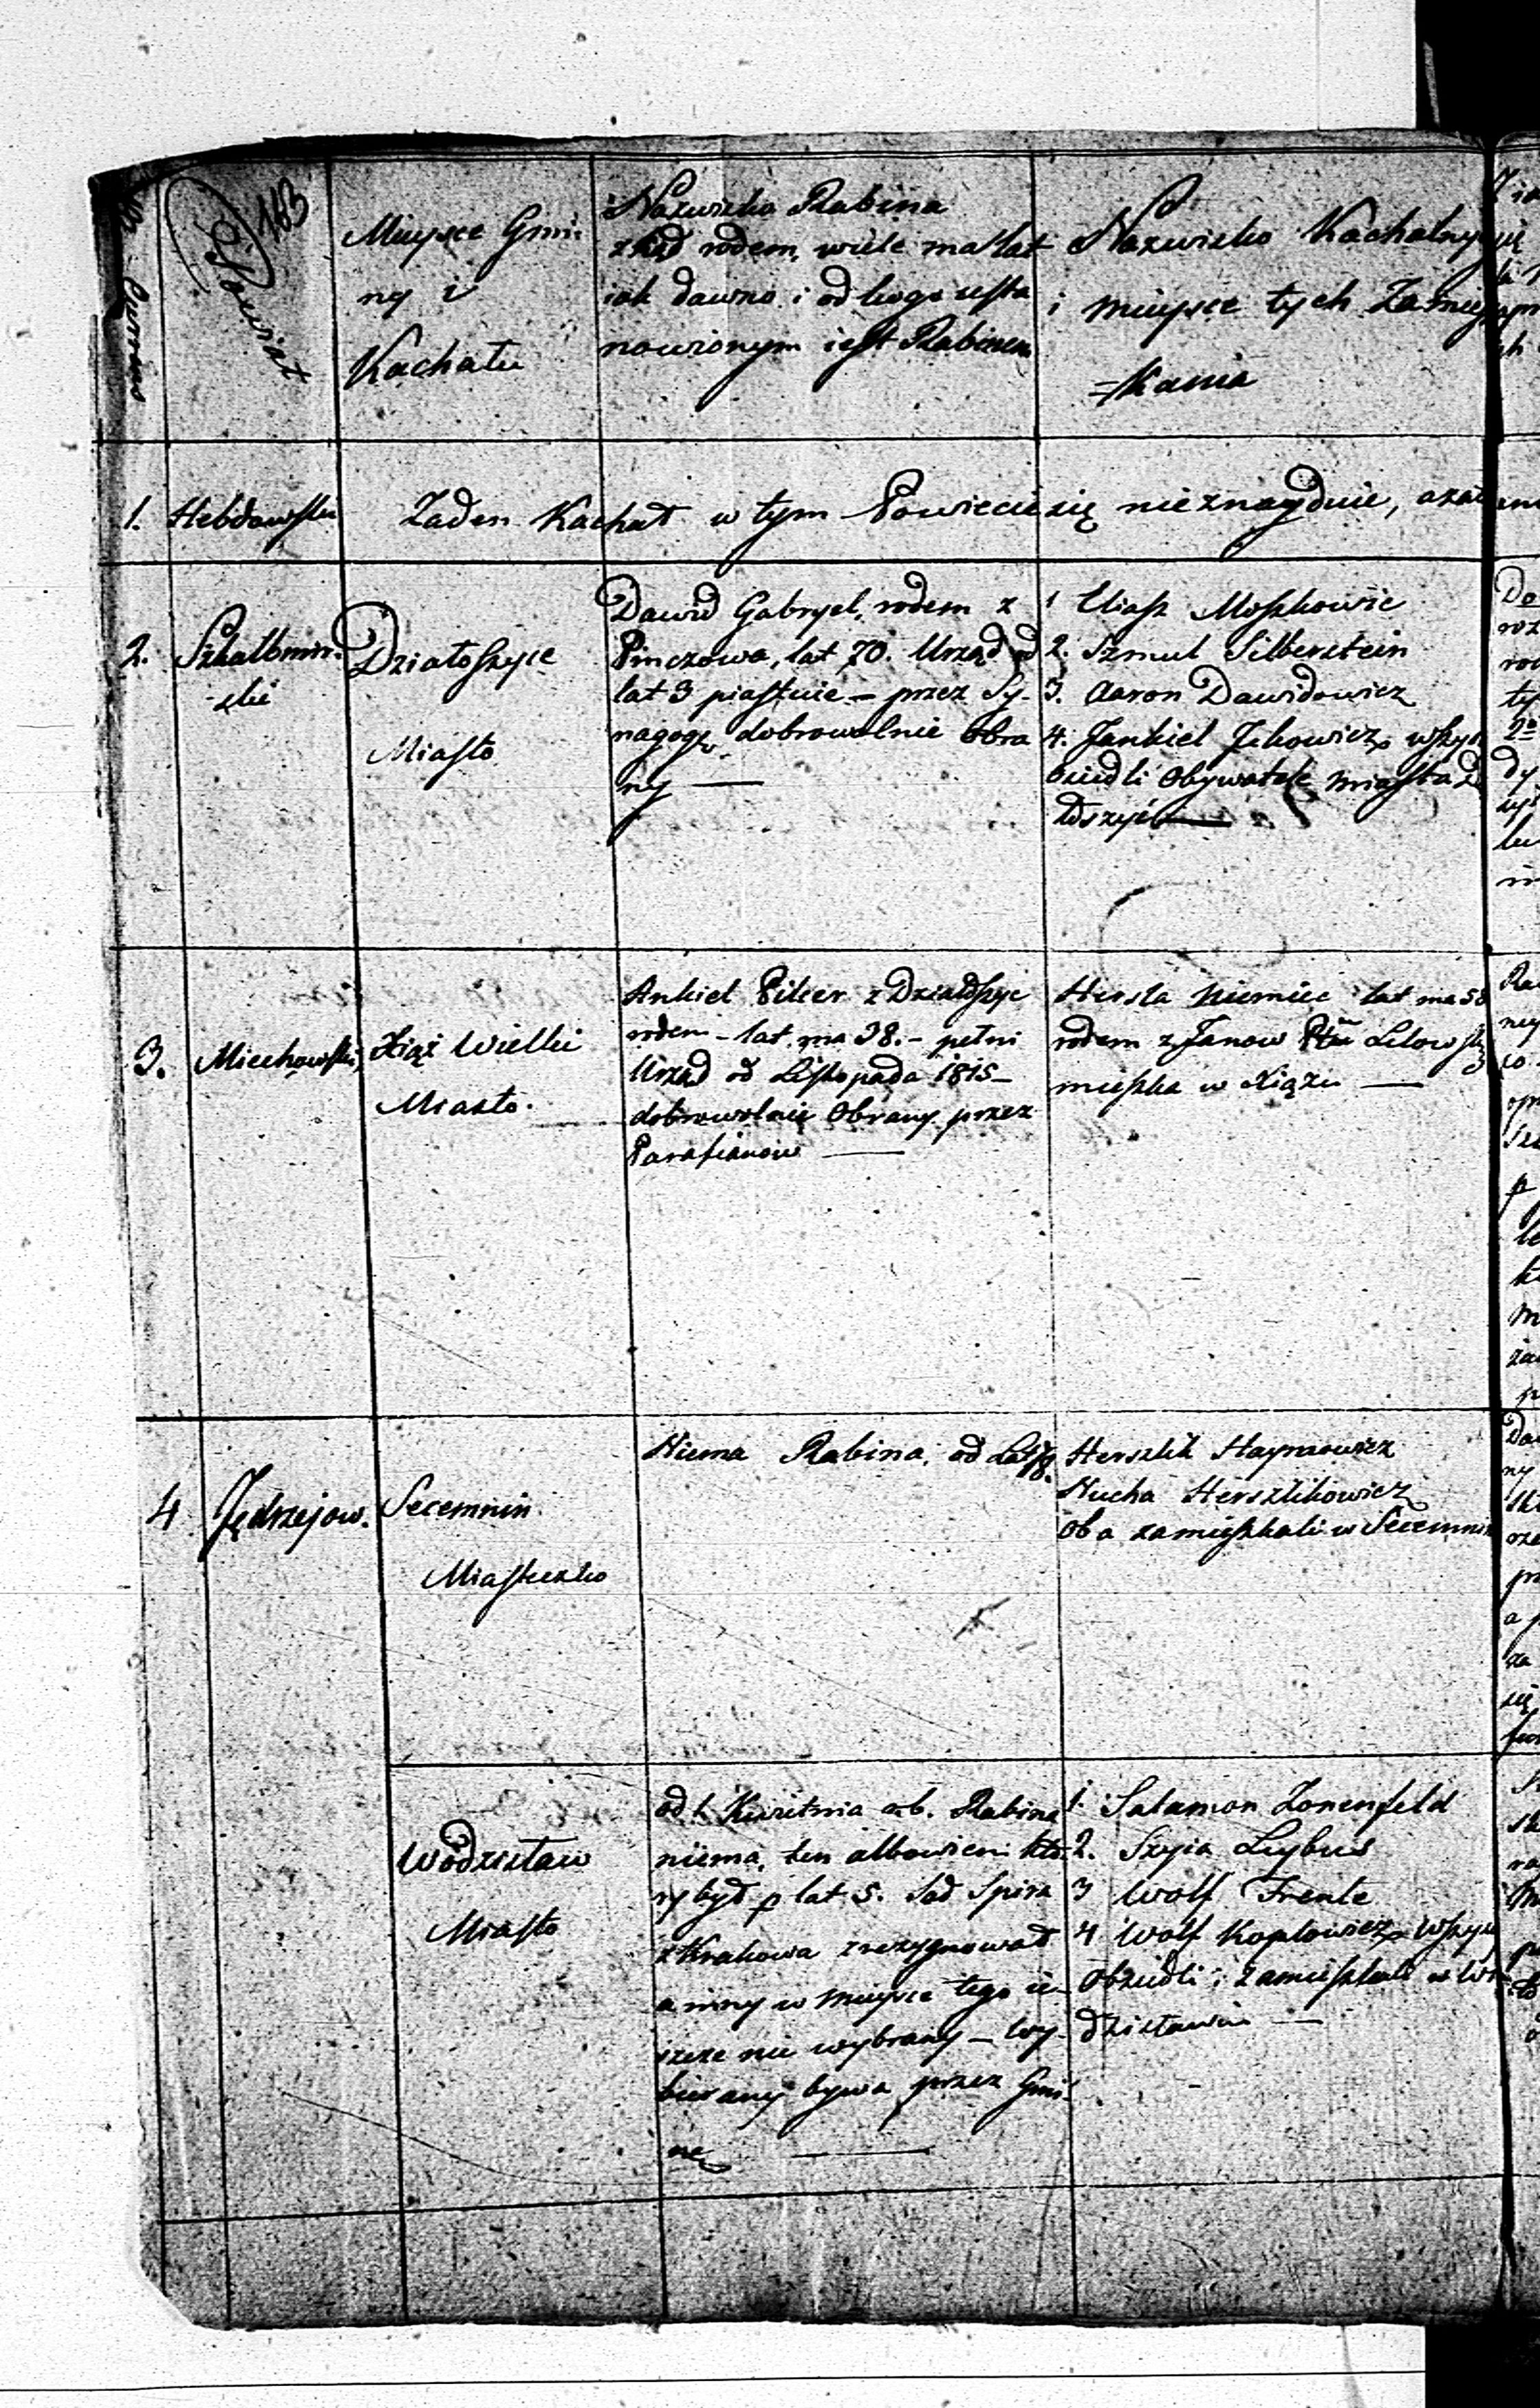 163
Powiat
Mieysce Gmi-
ny i
Kachału
Nazwisko Rabina
zkąd rodem, wiele ma lat
iak dawno i od kogo usta
nowionym iest Rabinem
Nazwisko Kachalny
i mieysce tych Zamiesz
=kania
1. Hebdowski
Zaden Kachał w tym Powiecie się nieznayduie, a
2. Szkalbmir-
-ski
Działoszyce
Miasto
Dawid Gabryel, rodem z
Pinczowa, lat 70. Urząd od
lat 3 piastuie – przez Sy-
nagogę dobrowolnie obra
ny —
1 Eliasz Moszkowic
2. Szmul Silbersztein
3. Aaron Dawidowicz
4. Jankiel Jckowicz wszys
osiedli Obywatele miasta D
łoszyc —
3. Miechowski
Xiąż Wielki
Miasto.
Ankiel Pilcer z Działoszyc
rodem – lat ma 38. – pełni
Urząd od Listopada 1815 –
dobrowolnie Obrany przez
Parafianow —
Hersla Niemiec lat ma 58
rodem z Janow Ptu Lelowski
mieszka w Xiążu —
4 Jędrzejow.
Secemnin
Miasteczko
Niema Rabina, od Lat 18.
Herszlik Haymowicz
Nucha Herszlikowicz
oba zamieszkali w Secemnin
Wodzisław
Miasto
od 1. Kwietnia a.b. Rabina
niema, ten albowiem kto-
ry był p lat 5. Sad Spira
z Krakowa zrezygnował
a inny w mieysce tego ie-
szcze nie wybrany – wy-
bierany bywa przez Gmi-
nę —
1. Salamon Zonenfeld
2. Szyia Leybus
3 Wolf Frenle
4 Wolf Koplowicz wszys
Obsiedli i zamieszkali w Wo
dzisławiu —